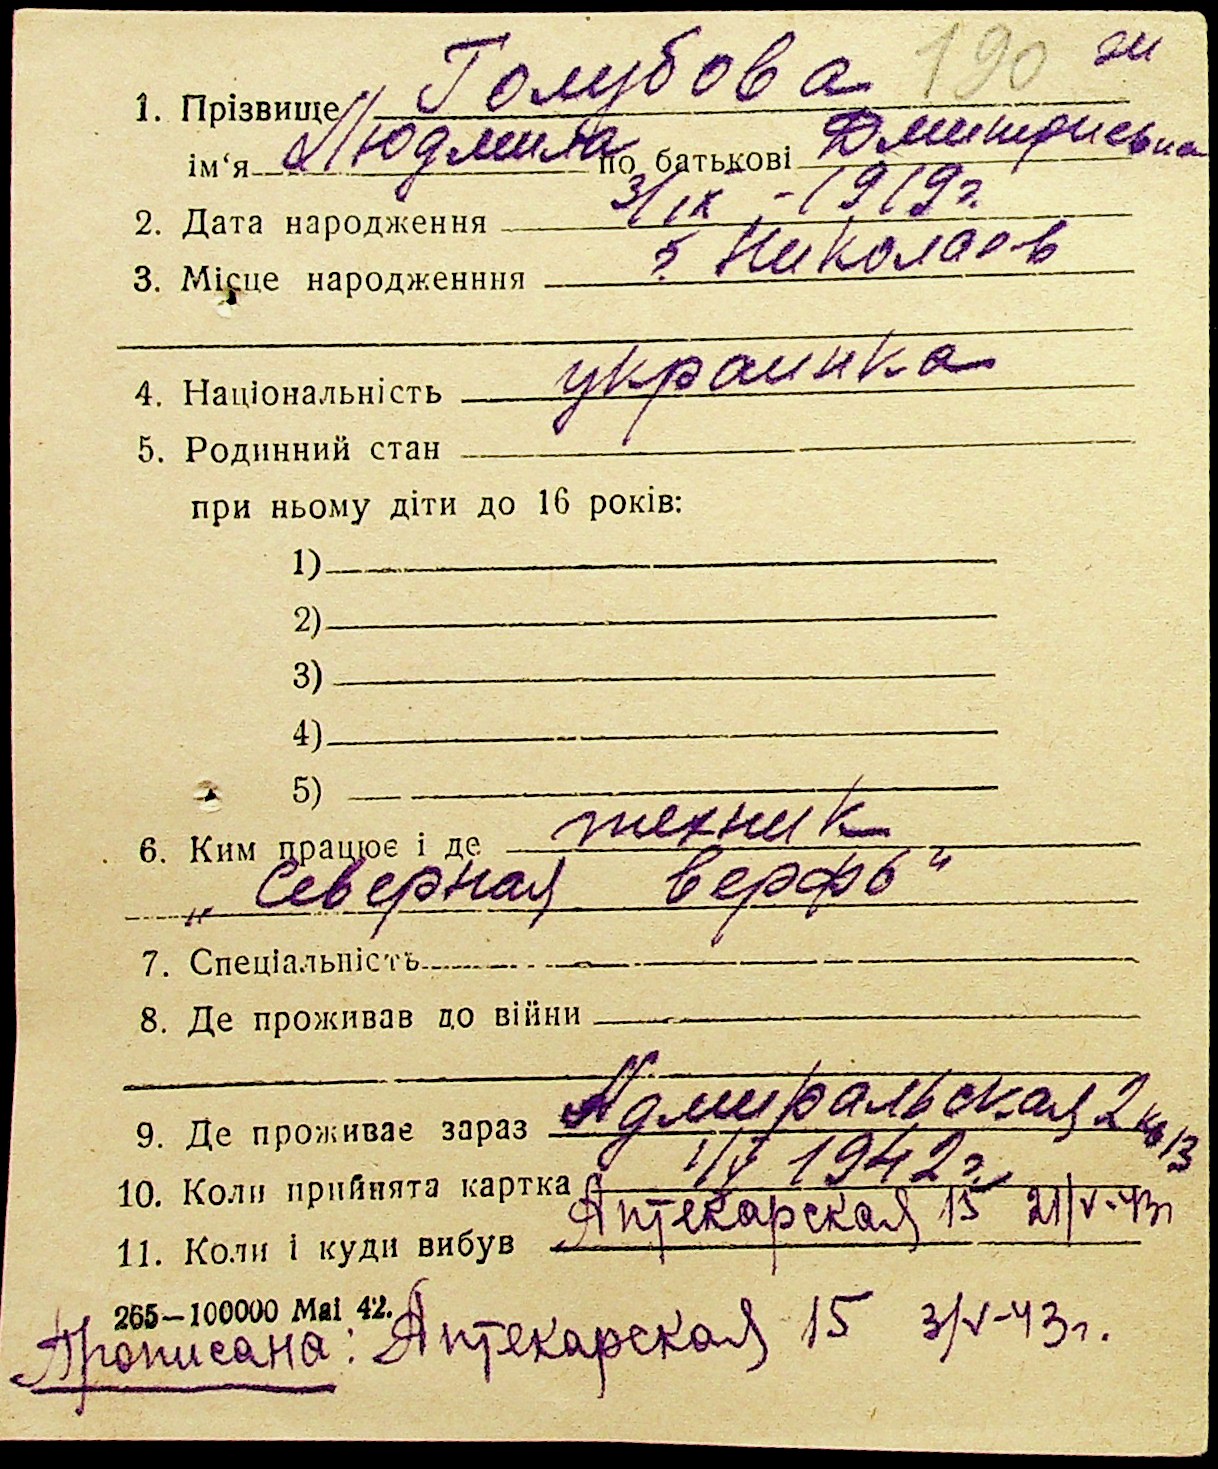 190 зи
1. Прізвище Голубова
ім‘я Людмила по батькові Дмитриевна
2. Дата народження 3/IX - 1919г.
3. Місце народженння г. Николаев
4. Національність украинка
5. Родинний стан
при ньому діти до 16 років:
1)
2)
3)
4)
5)
6. Ким працює і де техник
„Северная верфь“
7. Спеціальність
8. Де проживав до війни
9. Де проживає зараз Адмиральская 2 кв 13
10. Коли прийнята картка 1/V 1942г.
11. Коли і куди вибув Аптекарская 15 21/V-43г
265—100000 Mai 42.
Прописана: Аптекарская 15 3/V-43г.